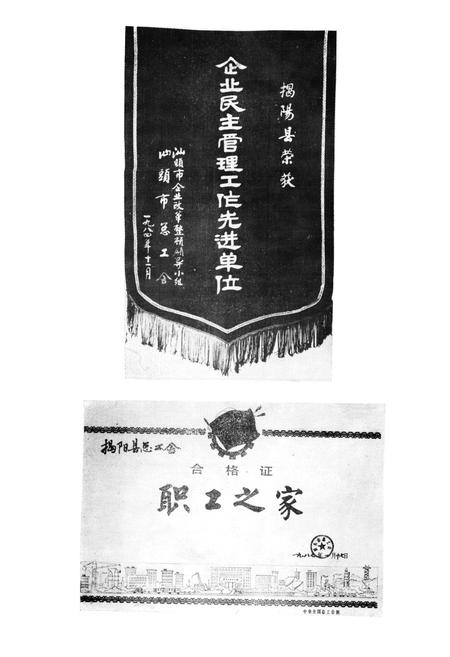 揭陽县荣获
企业民主管理工作先进单位
汕頭市企业改革整顿領导小组
汕頭市总工会
一九八四年十二月
揭阳县总工会
合格证
职工之家
中华全国总工会制